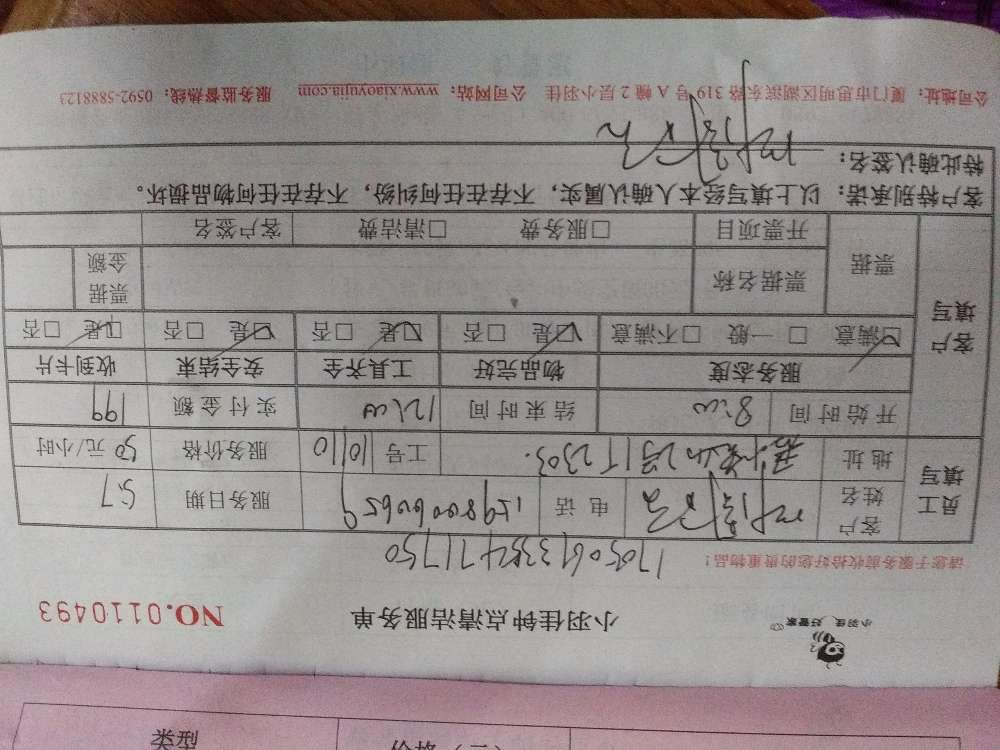 小羽佳 好管家
小羽佳钟点清洁服务单 NO.0110493
请您于服务前收拾好您的贵重物品!
员工填写
客户姓名 电话 15980060659 服务日期 5.7
地址 2303. 工号 101010 服务价格 50 元/小时
开始时间 8:00 结束时间 12:00 实付金额 199
客户填写
服务态度 物品完好 工具齐全 安全结束 收到卡片
☑满意 □一般 □不满意 ☑是 □否 ☑是 □否 ☑是 □否 ☑是 □否
票据 票据名称 票据金额
开票项目 □服务费 □清洁费 客户签名
客户特别承诺:以上填写经本人确认属实,不存在任何纠纷,不存在任何物品损坏。
特此确认签名:
公司地址:厦门市思明区湖滨东路 319 号 A 幢 2 层小羽佳 公司网站:www.xiaoyujia.com 服务监督热线:0592-5888123
类型